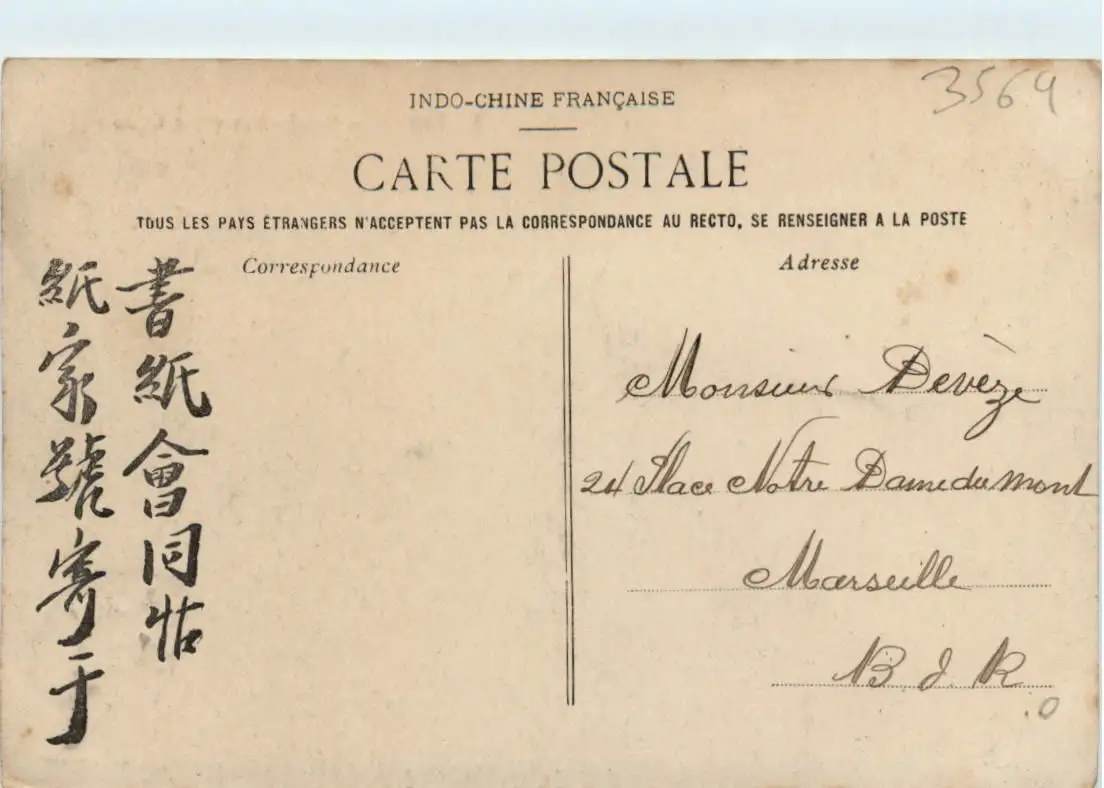 3569
INDO-CHINE FRANÇAISE
CARTE POSTALE
TOUS LES PAYS ÉTRANGERS N'ACCEPTENT PAS LA CORRESPONDANCE AU RECTO, SE RENSEIGNER A LA POSTE
Correspondance
書紙會同帖
紙家號寄于
Adresse
Monsieur Devèze
24 Place Notre Dame du Mont
Marseille
B d R